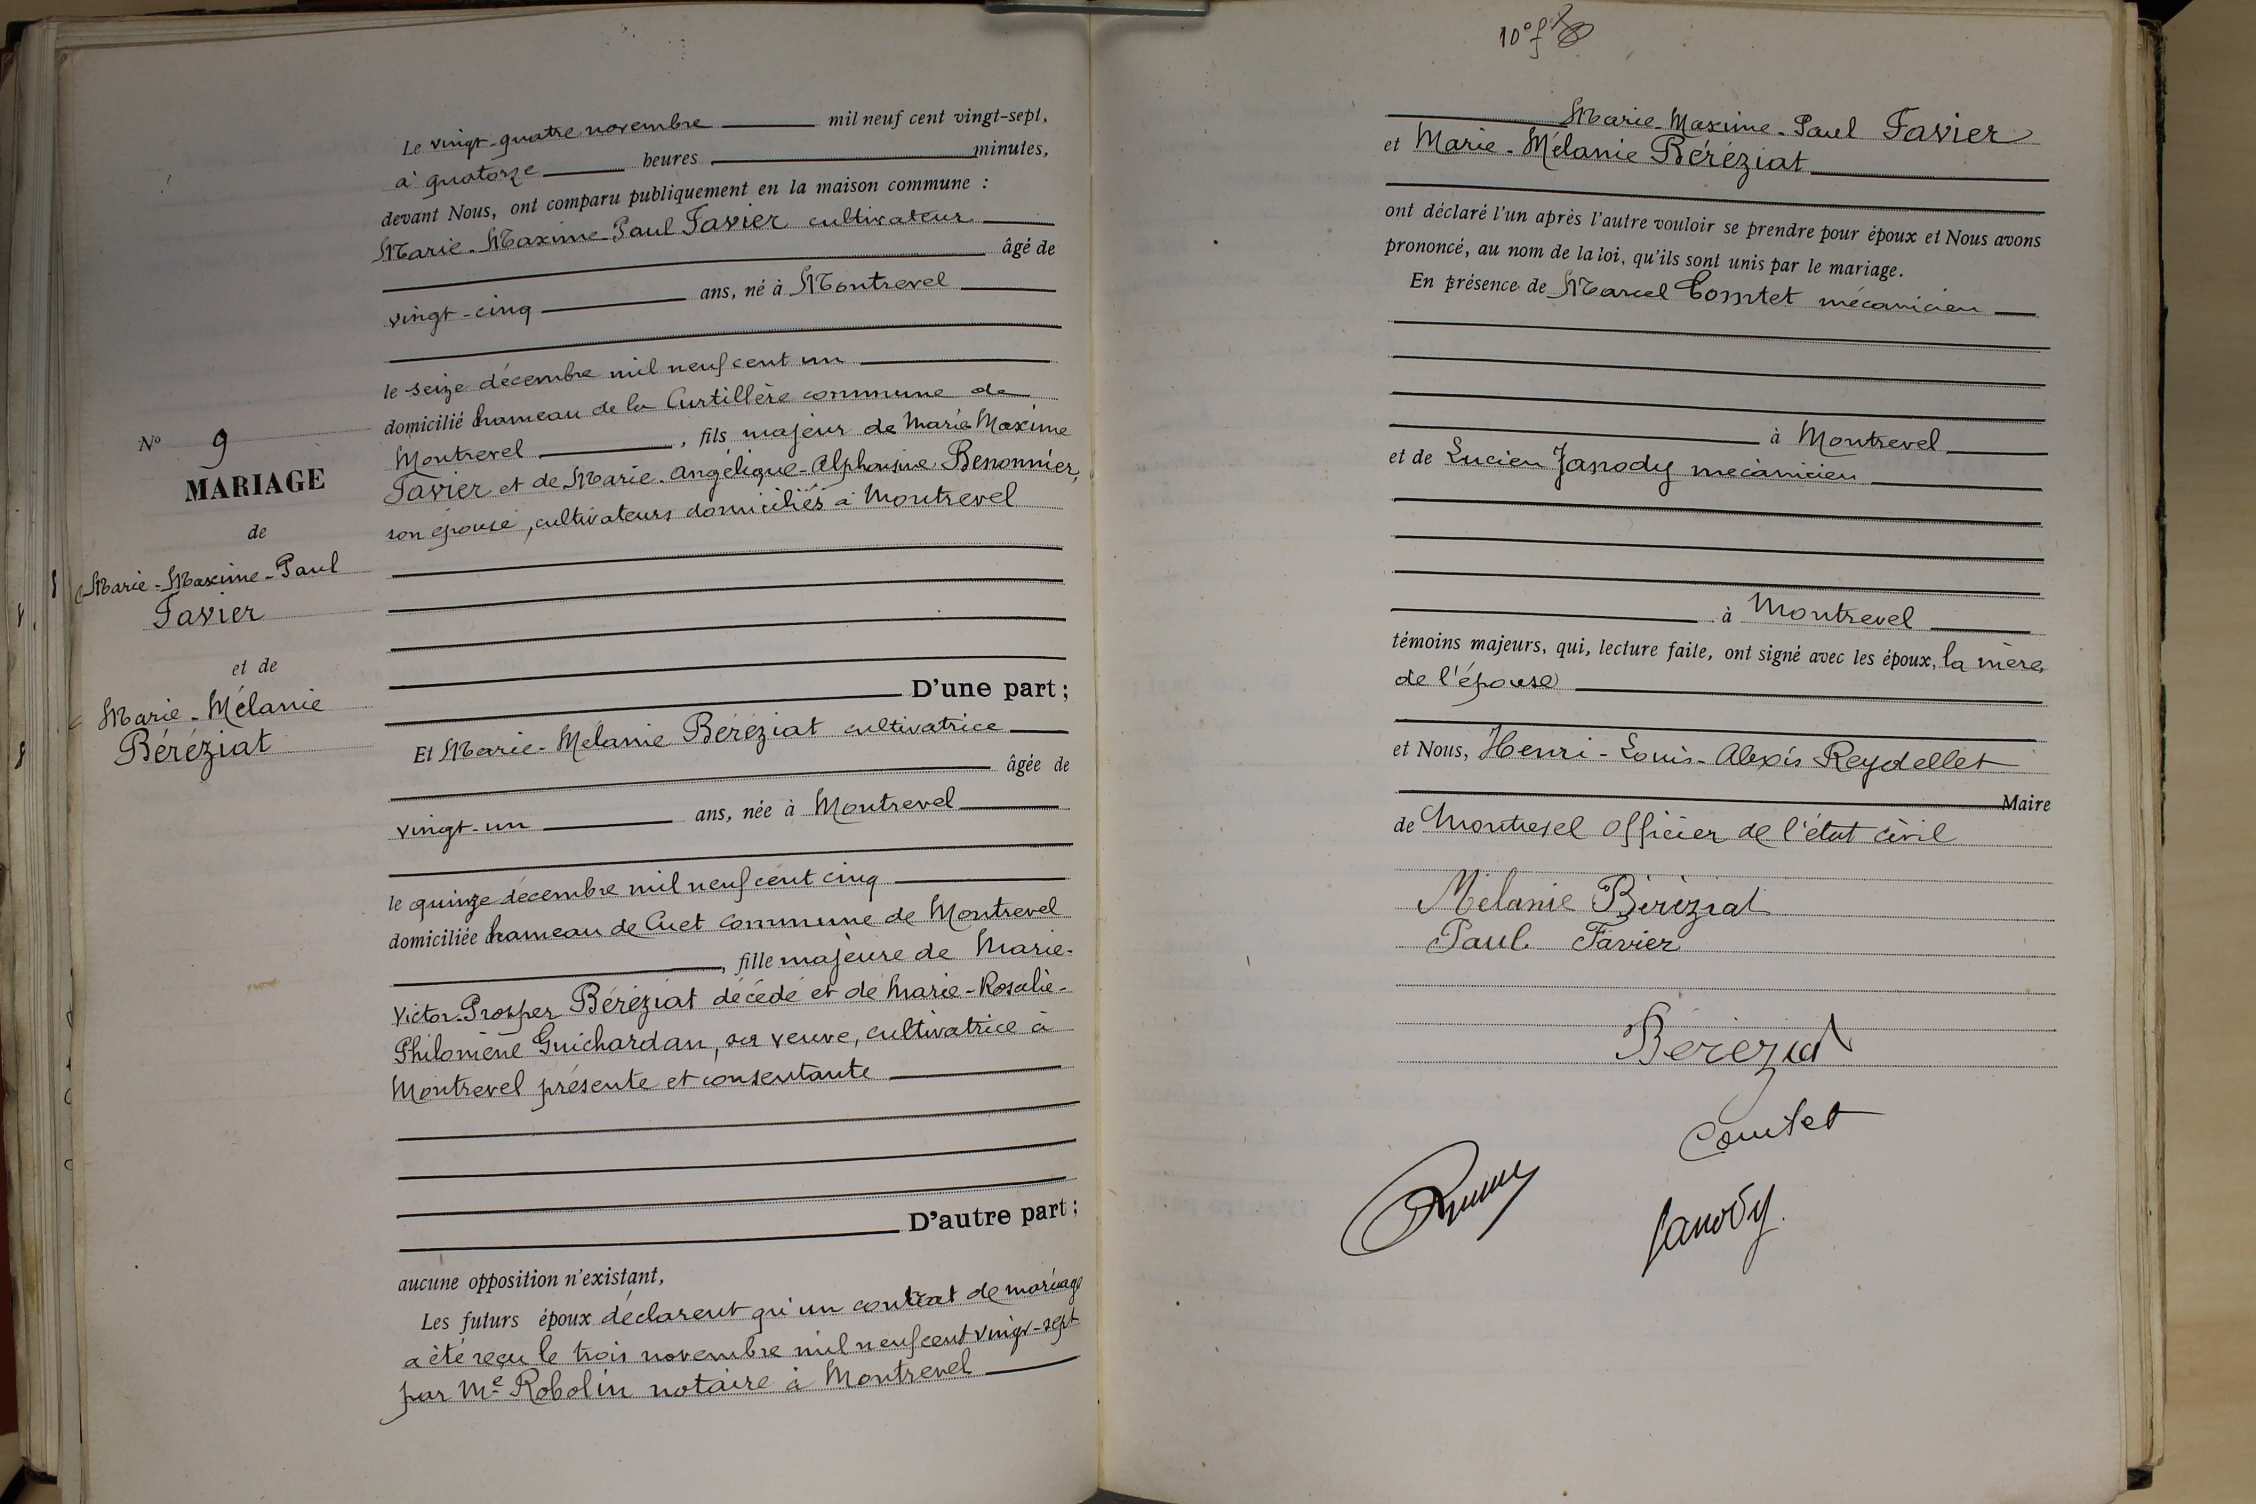 N° 9
MARIAGE
de
Marie-Maxime-Paul
Favier
et de
Marie-Mélanie
Béréziat
Le vingt-quatre novembre mil neuf cent vingt-sept,
à quatorze heures minutes,
devant Nous, ont comparu publiquement en la maison commune :
Marie-Maxime-Paul Favier cultivateur
âgé de
vingt-cinq ans, né à Montrevel
le seize décembre mil neuf cent un
domicilié hameau de la Curtillère commune de
Montrevel, fils majeur de Marie Maxime
Favier et de Marie-Angélique-Alphonsine Benonnier,
son épouse, cultivateurs domiciliés à Montrevel
D'une part ;
Et Marie-Mélanie Béréziat cultivatrice
âgée de
vingt-un ans, née à Montrevel
le quinze décembre mil neuf cent cinq
domiciliée hameau de Cuet commune de Montrevel
, fille majeure de Marie-
Victor-Prosper Béréziat décédé et de Marie-Rosalie-
Philomène Guichardan, sa veuve, cultivatrice à
Montrevel présente et consentante
D'autre part ;
aucune opposition n'existant,
Les futurs époux déclarent qu'un contrat de mariage
a été reçu le trois novembre mil neuf cent vingt-sept
par Me Robolin notaire à Montrevel
10° f
Marie-Maxime-Paul Favier
et Marie-Mélanie Béréziat
ont déclaré l'un après l'autre vouloir se prendre pour époux et Nous avons
prononcé, au nom de la loi, qu'ils sont unis par le mariage.
En présence de Marcel Comtet mécanicien
à Montrevel
et de Lucien Janody mécanicien
à Montrevel
témoins majeurs, qui, lecture faite, ont signé avec les époux, la mère
de l'épouse
et Nous, Henri-Louis-Alexis Reydellet
Maire
de Montrevel officier de l'état civil
Mélanie Béréziat
Paul Favier
Béréziat
Comtet
Janody